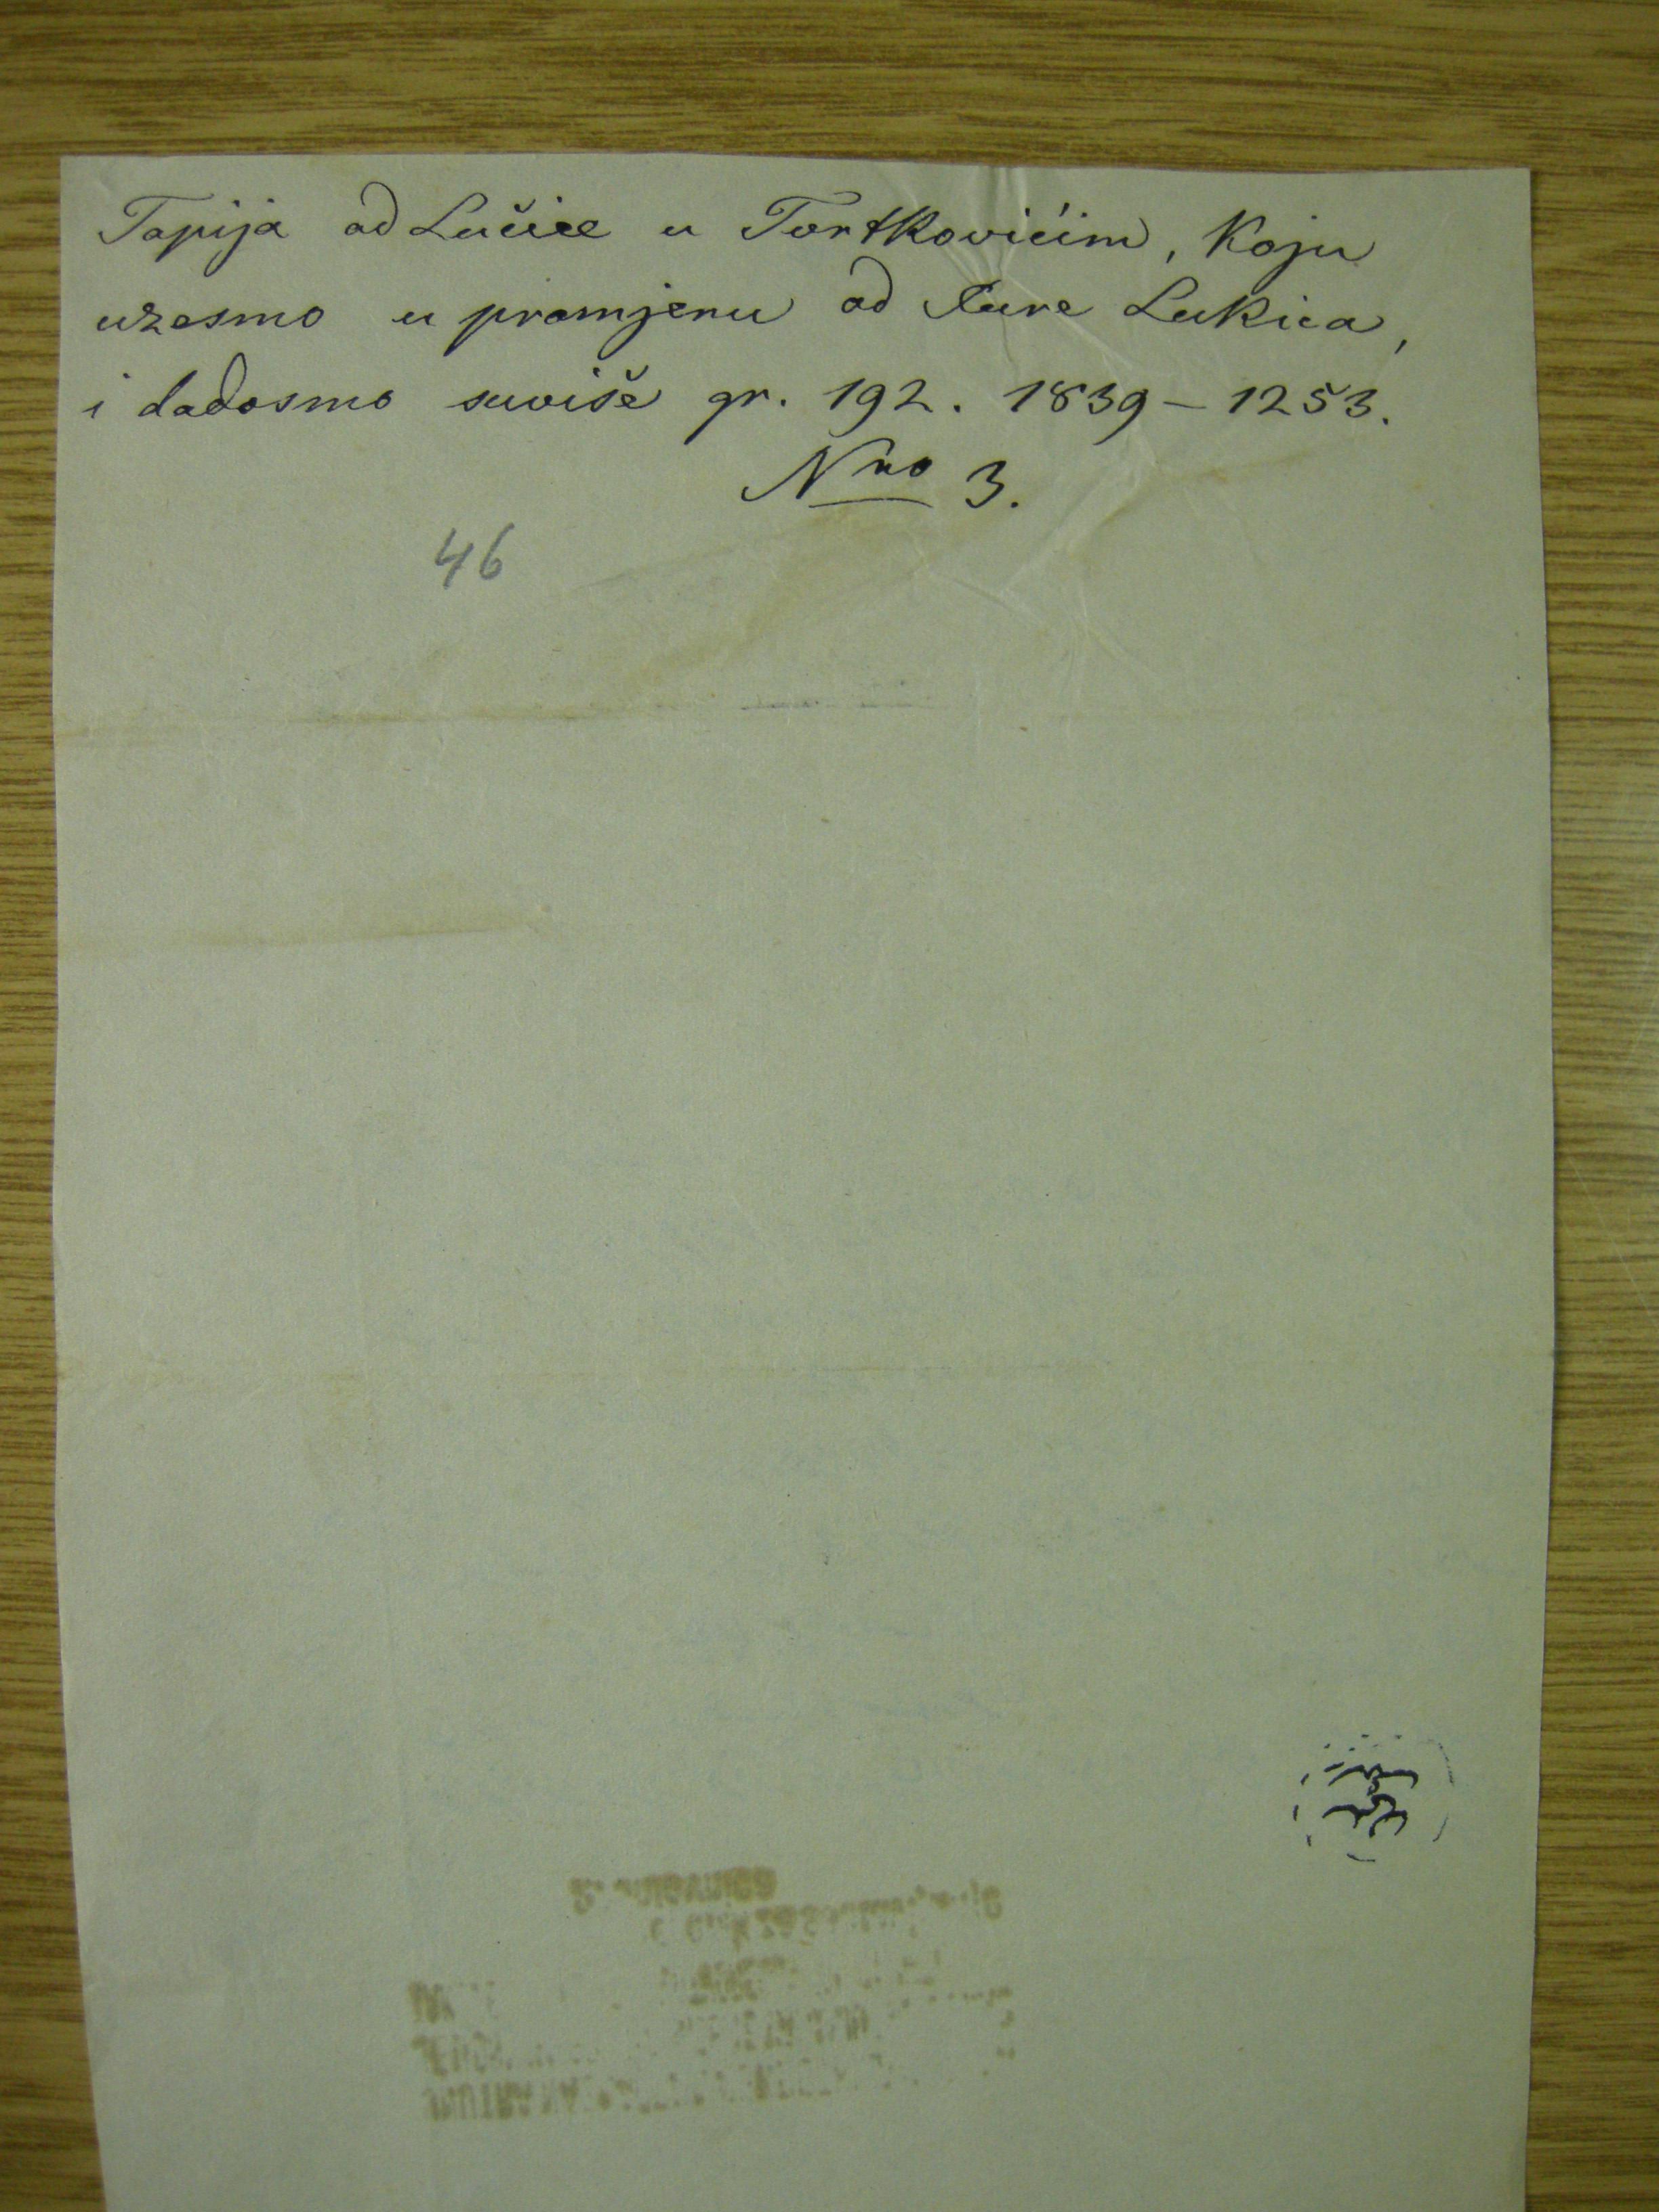 Tapija od Lučice u Tvrtkovićim, koju
uzesmo u promjenu od Jure Lukića,
i dadosmo suviše gr. 192. 1839 – 1253.
Nro 3.
46